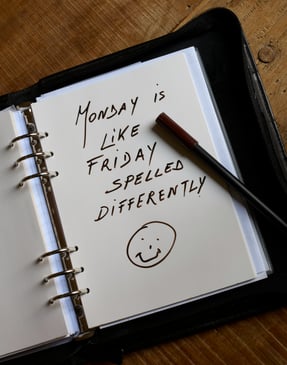 MONDAY is
LIKE
FRIDAY
SPELLED
DIFFERENTLY